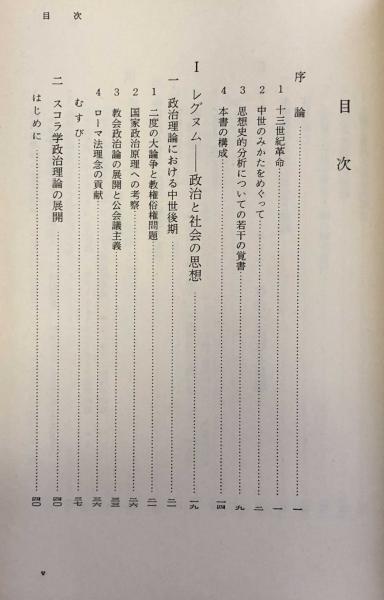 目次
目次
序論……一
1 十三世紀革命……一
2 中世のみかたをめぐって……二
3 思想史的分析についての若干の覚書……九
4 本書の構成……一四
I レグヌム――政治と社会の思想……一九
一 政治理論における中世後期……二一
1 二度の大論争と教権俗権問題……二一
2 国家政治原理への考察……二六
3 教会政治論の展開と公会議主義……三三
4 ローマ法理念の貢献……三六
むすび……三七
二 スコラ学政治理論の展開……四〇
はじめに……四〇
v